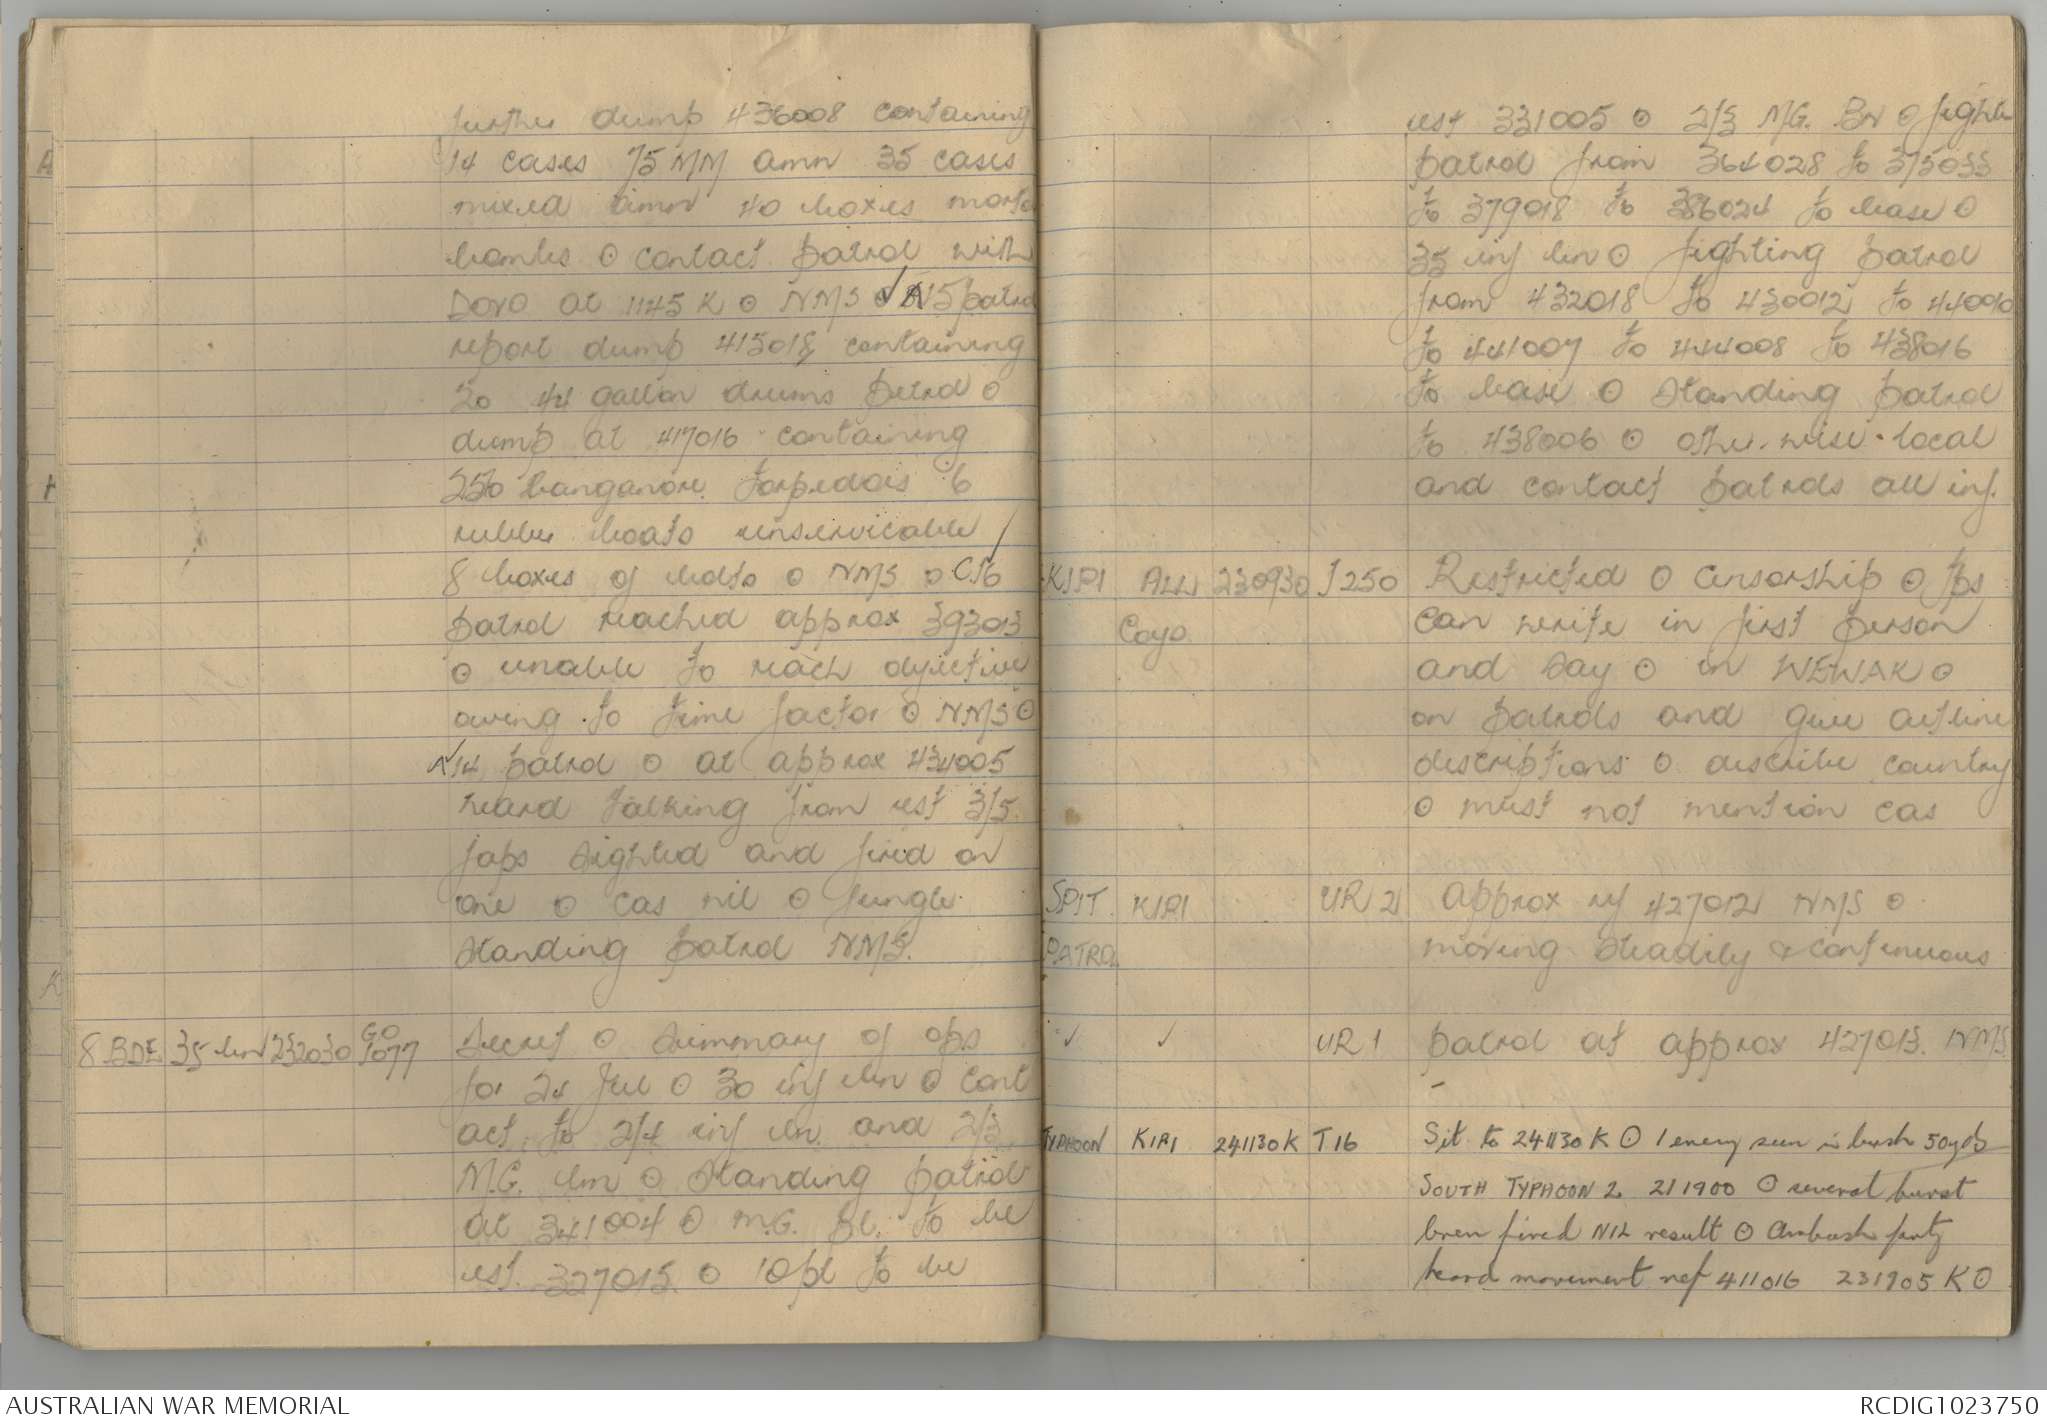 further dump 436008 containing
14 cases 75 MM amn 35 cases
mixed amn 40 boxes mortar
bombs ⊙ contact patrol with
DOVO at 1145 K ⊙ NMS ⊙ A15 patrol
report dump 415018 containing
20 44 gallon drums petrol ⊙
dump at 417016 containing
250 banganore torpedoes 6
rubber boats unservicable
8 boxes of bolts ⊙ NMS ⊙ C16
patrol reached approx 393013
⊙ unable to reach objective
owing to time factor ⊙ NMS ⊙
A14 patrol ⊙ at approx 434005
heard talking from est 3/5
japs sighted and fired on
one ⊙ cas nil ⊙ Jungle
Standing patrol NMS.
8 BDE 35 bn 232030 GO 1077 Secret ⊙ Summary of ops
for 24 Jul ⊙ 30 inf bn ⊙ Cont
act to 2/4 inf bn and 2/3
M.G. bn ⊙ Standing patrol
at 341004 ⊙ M.G. Pl. to be
est. 327015 ⊙ 10 pl to be
est 331005 ⊙ 2/3 MG. BN ⊙ fightin
patrol from 364028 to 375033
to 379018 to 386024 to base ⊙
35 inf bn ⊙ fighting patrol
from 432018 to 430012 to 440010
to 441007 to 444008 to 438016
to base ⊙ Standing patrol
to 438006 ⊙ other-wise local
and contact patrols all inf.
KIRI ALL Coys 230930 J250 Restricted ⊙ Censorship ⊙ tps
can write in first person
and say ⊙ in WEWAK ⊙
on patrols and give outline
descriptions ⊙ describe country
⊙ must not mention cas
SPIT PATROL KIRI UR 2 approx rf 427012 NMS ⊙
moving steadily & continuous
✓ ✓ UR 1 patrol at approx 427013. NMS
TYPHOON KIRI 241130K T16 Sit to 241130 K ⊙ 1 enemy seen in bush 50yds
SOUTH TYPHOON 2 211900 ⊙ several burst
bren fired NIL result ⊙ Ambush party
heard movement ref 411016 231905 K ⊙
AUSTRALIAN WAR MEMORIAL
RCDIG1023750